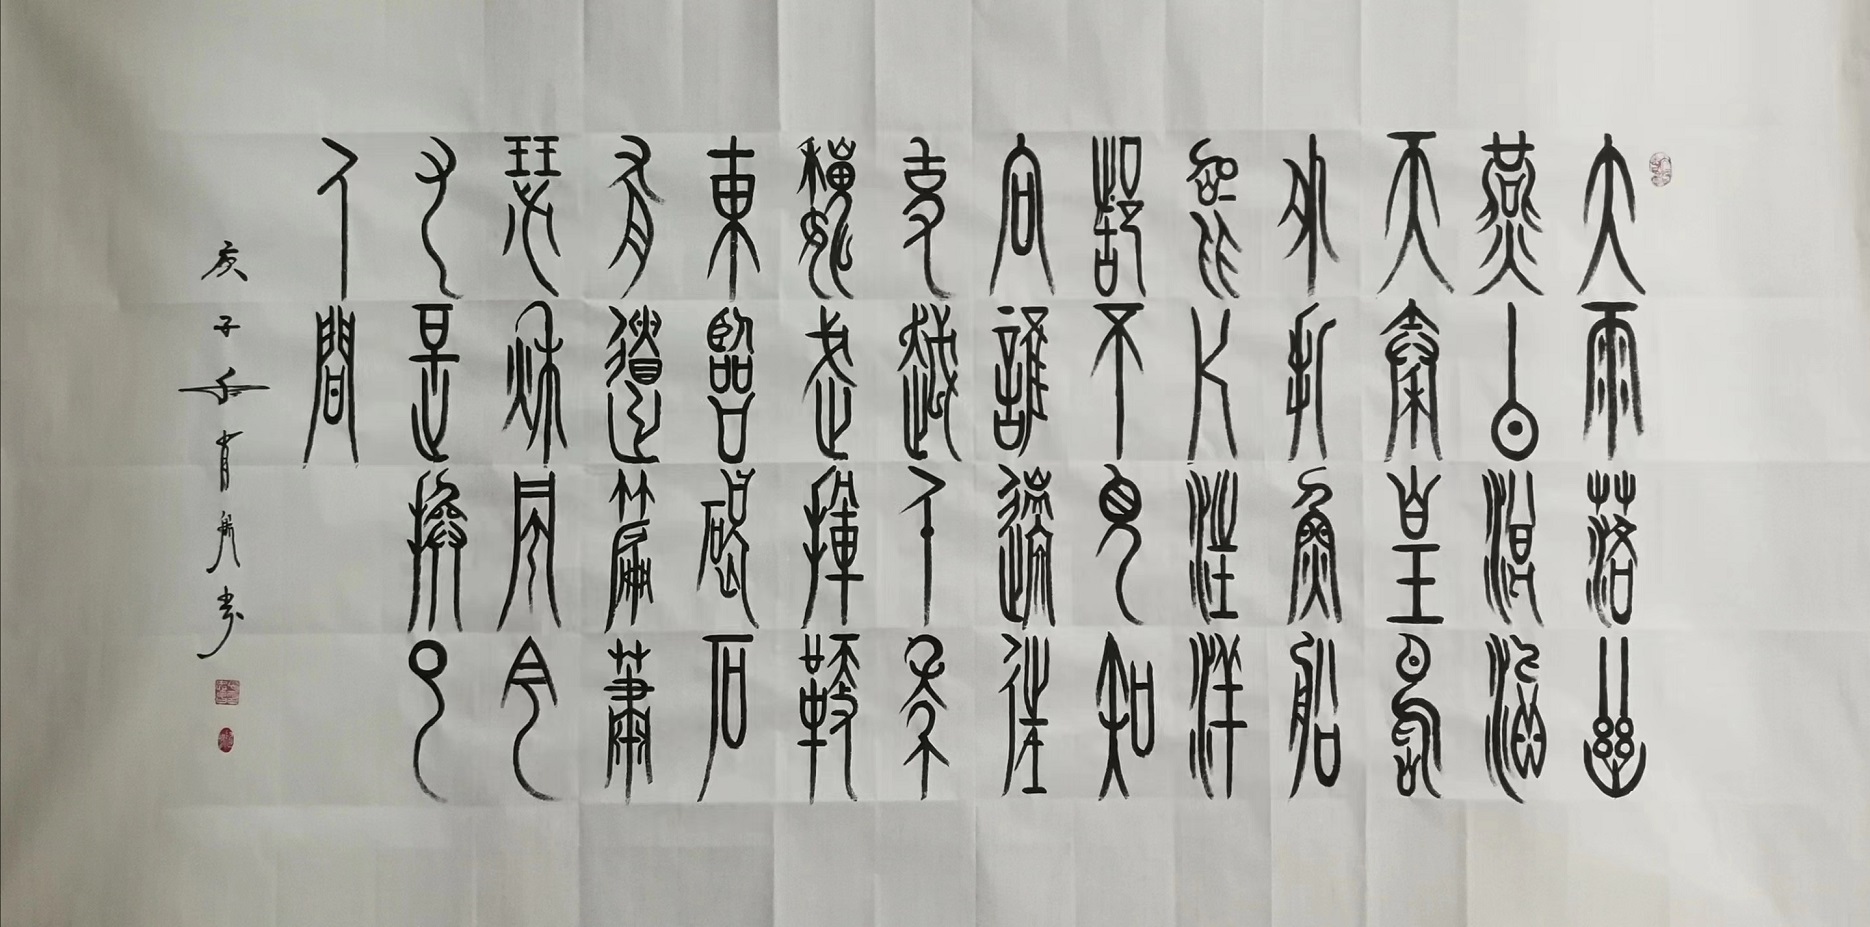 大雨落幽
燕白浪滔
天秦皇島
外打魚船
壹片汪洋
都不見知
向誰邊往
事越千年
魏武揮鞭
東臨碣石
有遺篇蕭
瑟秋風今
又是換了
人間
庚子年肖书